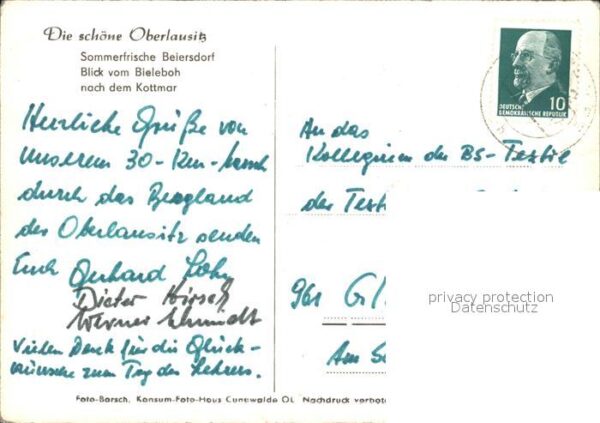 Die schöne Oberlausitz
Sommerfrische Beiersdorf
Blick vom Bieleboh
nach dem Kottmar
Herzliche Grüße von
unserem 30-Km-Marsch
durch das Bergland
der Oberlausitz senden
Euch Gerhard
Dieter Hirsch
Werner Schmidt
Vielen Dank für die Glück-
wünsche zum Tag des Lehrers.
Foto-Barsch, Konsum-Foto-Haus Cunewalde OL Nachdruck verbote
10
DEUTSCHE
DEMOKRATISCHE REPUBLIK
An das
Kollegium der BS-Textil
der Text
961 Gl
Am Sc
privacy protection
Datenschutz